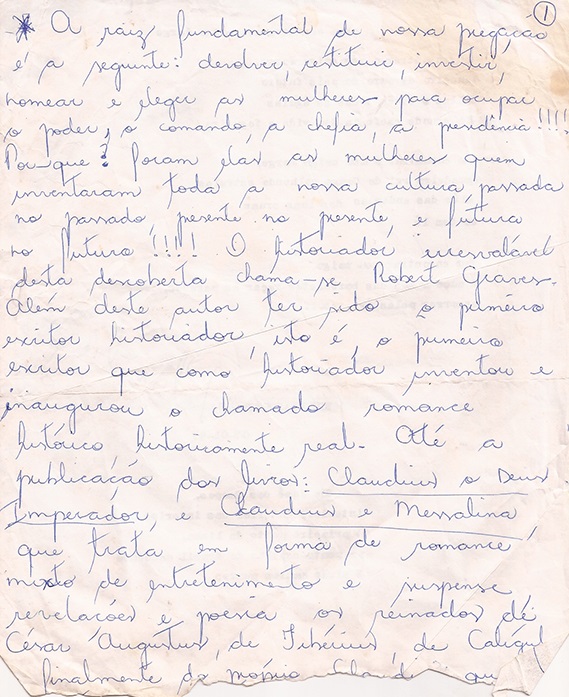 1
* A raiz fundamental de nossa pregação
é a seguinte: devolver, restituir, investir,
nomear e eleger as mulheres para ocupar
o poder, o comando, a chefia, a presidência!!!!
Por-que? Foram elas as mulheres quem
inventaram toda a nossa cultura, passada
no passado, presente no presente, e futura
no futuro!!!! O historiador
desta descoberta chama-se Robert Graves.
Além deste autor ter sido o primeiro
escritor historiador, isto é, o primeiro
escritor que como historiador inventou e
inaugurou o chamado romance
histórico, historicamente real. Até a
publicação dos livros: Claudius o Deus
Imperador, e Claudius e Messalina,
que trata em forma de romance,
mixto de entretenimento e suspense,
revelações e poesia os reinados de,
César Augustus, de Tibérius, de Calígul
finalmente do próprio Claudi qu